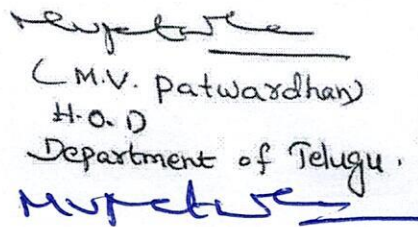 (M.V. Patwardhan)
H.O.D
Department of Telugu.